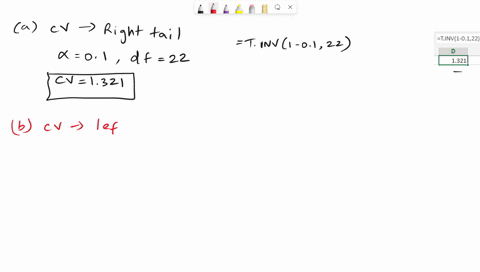 (a) CV → Right tail
α = 0.1 , df = 22
CV = 1.321
=T.INV(1-0.1,22)
=T.INV(1-0.1,22)
D
1.321
(b) CV → lef